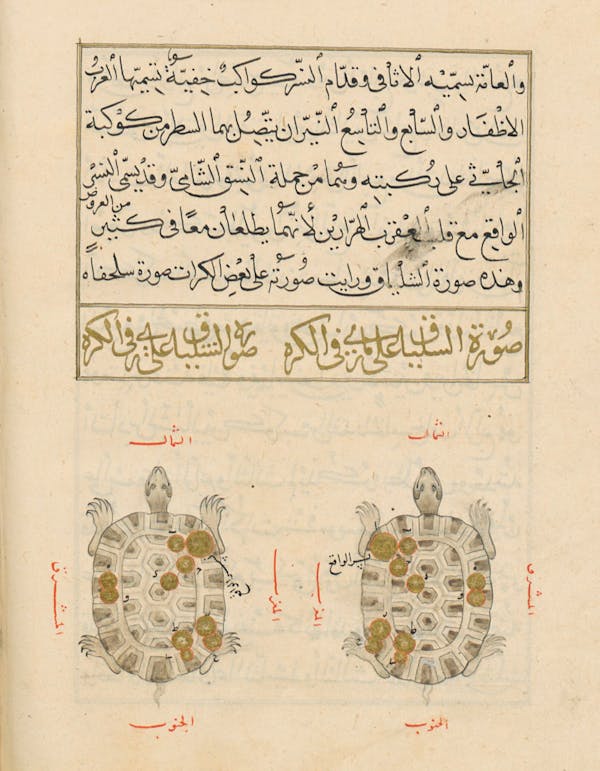 والعامة يسميه الاثافى وقدام النسر كواكب خفية يسميها العرب
الاظفار والسابع والتاسع النيران يتصل بهما السطر من كوكبة
الجاثي على ركبته وهما من جملة النسق الشامى وقد يسمى النسر
الواقع مع قلب العقرب الهرارين لأنهما يطلعان معا فى كثير من العروض
وهذه صورة الشلياق ورايت صورته على بعض الكرات صورة سلحفاه
صورة السلياق على ما يرى فى الكره صورة الشلياق على ما يرى فى الكره
الشمال
الشمال
النسر الواقع
المشرق
المغرب
المغرب
المشرق
الجنوب
الجنوب